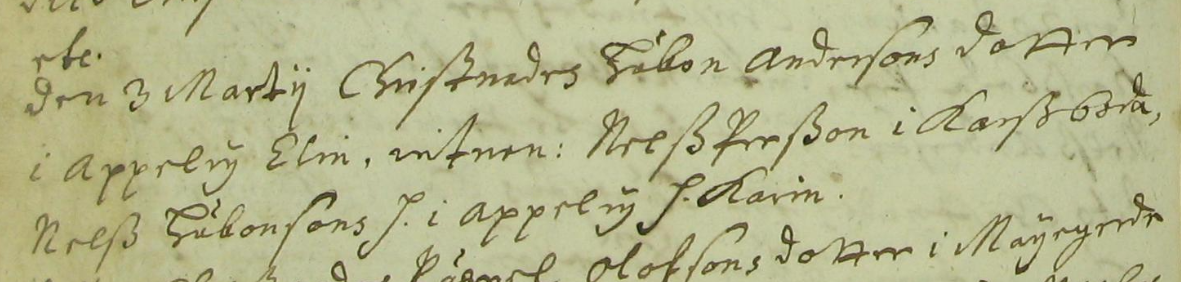 etc.
den 3 Martij Christnades Håkon Andersons dotter
i Appelry Elin, vitnen: Nelß Perßon i Karßboda,
Nelß Håkonsons h. i Appelry h. Karin.
Olofsons dotter i Mayegerde